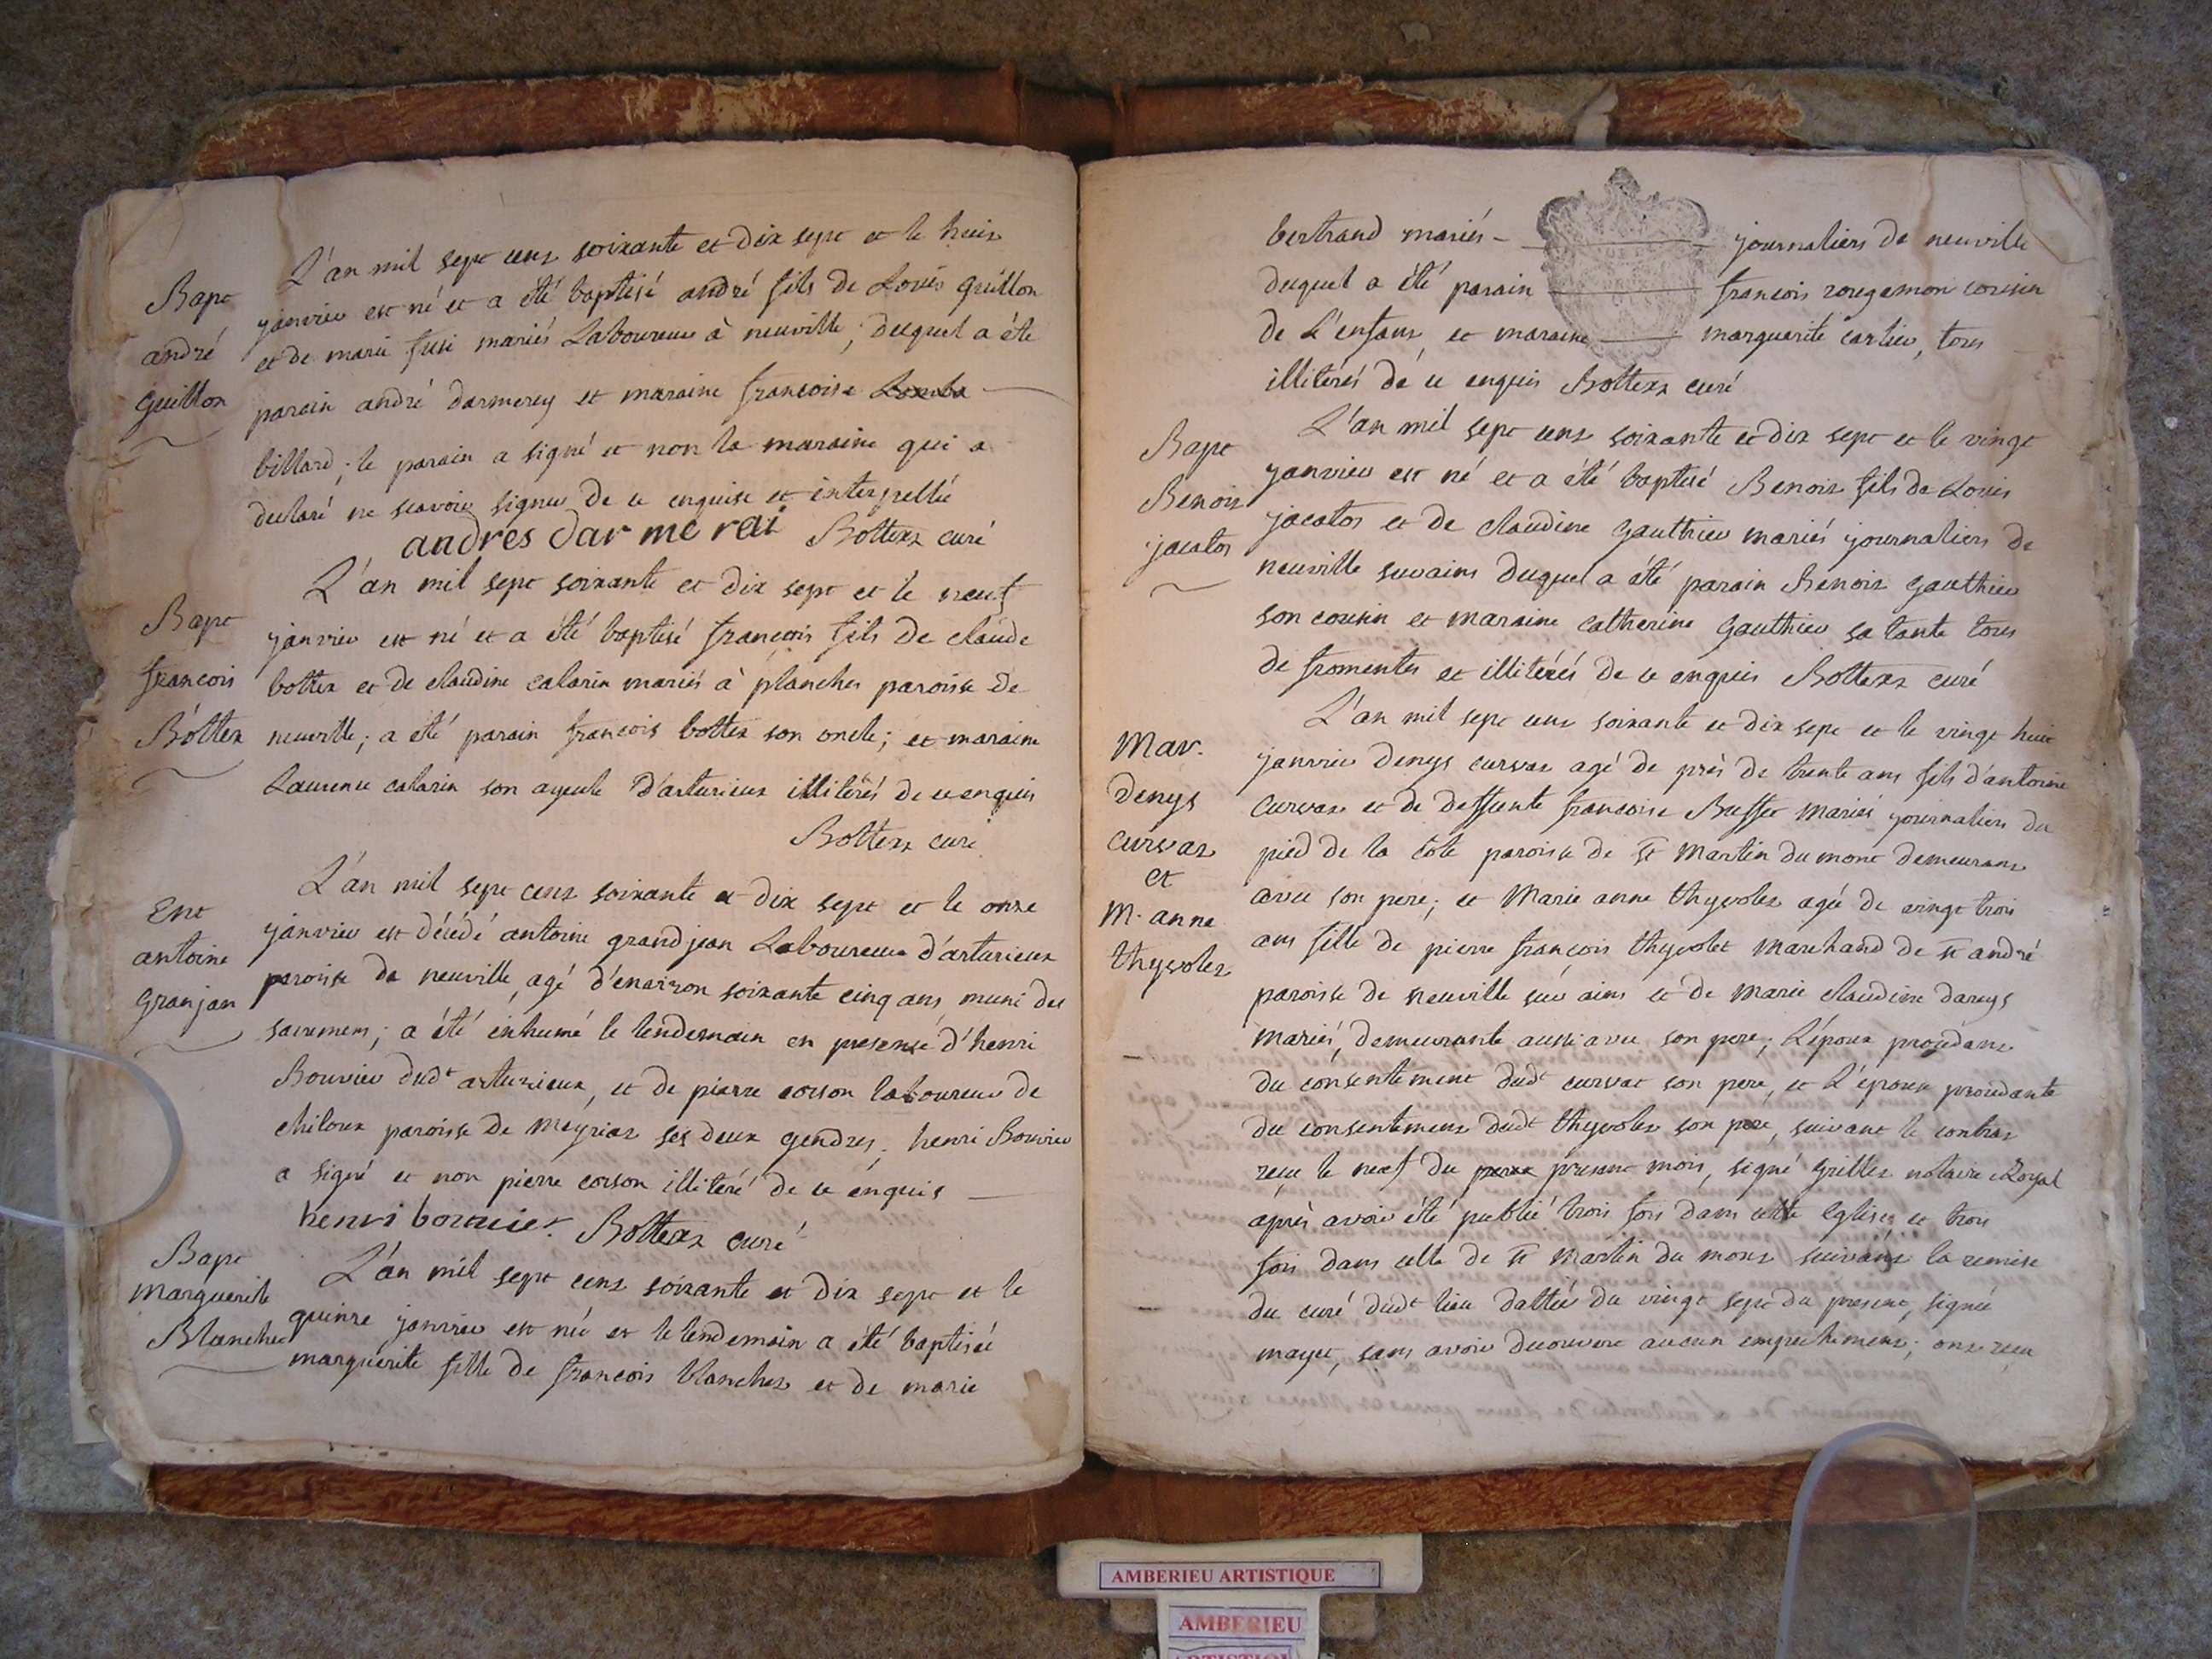 Bapt
andré
guillon
L'an mil sept cens soixante et dix sept et le huit
janvier est né et a été baptisé andré fils de Louis guillon
et de marie fusi mariés Laboureur à neuville; duquel a été
parain andré darmerey et maraine francoise
billard; le parain a signé et non la maraine qui a
declaré ne scavoir signer de ce enquise et interpellée
andres dar me rai Bottex curé
Bapt
francois
Bottex
L'an mil sept soixante et dix sept et le neuf
janvier est né et a été baptisé francois fils de claude
bottex et de claudine calarin mariés à planches paroisse de
neuville; a été parain francois bottex son oncle; et maraine
Laurence calarin son ayeule d'arturieux illitérés de ce enquis
Bottex curé
Ent
antoine
Granjan
L'an mil sept cens soixante et dix sept et le onze
janvier est décédé antoine grandjean Laboureur d'arturieux
paroisse de neuville, agé d'environ soixante cinq ans, muni des
sacremens; a été inhumé le lendemain en presense d'henri
Bouvier dudt arturieux, et de pierre corson laboureur de
chiloux paroisse de meyriat ses deux gendres; henri Bouvier
a signé et non pierre corson illiteré de ce enquis
henri bouuier Bottex curé
Bapt
marguerite
Blanchet
L'an mil sept cens soixante et dix sept et le
quinze janvier est née et le lendemain a été baptisée
marguerite fille de francois blanchet et de marie
bertrand mariés journaliers de neuville
duquel a été parain francois rougemon cousin
de L'enfant, et maraine marguerite cartier, tous
illiterés de ce enquis Bottex curé
Bapt
Benoit
jacatos
L'an mil sept cens soixante et dix sept et le vingt
janvier est né et a été baptisé Benoit fils de Louis
jacatos et de claudine gauthier mariés journaliers de
neuville suvains duquel a été parain Benoit gauthier
son cousin et maraine catherine gauthier sa tante tous
de fromentes et illitérés de ce enquis Bottex curé
Mar.
denys
curvat
et
M. anne
thyvolet
L'an mil sept cens soixante et dix sept et le vingt huit
janvier denys curvat agé de près de trente ans fils d'antoine
curvat et de deffunte francoise Buffet mariés journaliers du
pied de la cote paroisse de st Martin du mont demeurant
avec son pere; et Marie anne thyvolet agée de vingt trois
ans fille de pierre françois thyvolet Marchand de st andré
paroisse de neuville sur ains et de Marie claudine dareys
Mariés, demeurante aussi avec son pere; L'époux procédant
du consentement dudt curvat son pere, et L'épouse procédante
du consentement dudt thyvolet son pere, suivant le contrat
reçu le neuf du present mois, signé Grillet notaire Royal
après avoir été publié trois fois dans cette eglise et trois
fois dans celle de st Martin du mont suivant la remise
du curé dudt lieu dattée du vingt sept du present, signée
mayet, sans avoir decouvert aucun empechement; ont reçu
AMBERIEU ARTISTIQUE
AMBERIEU